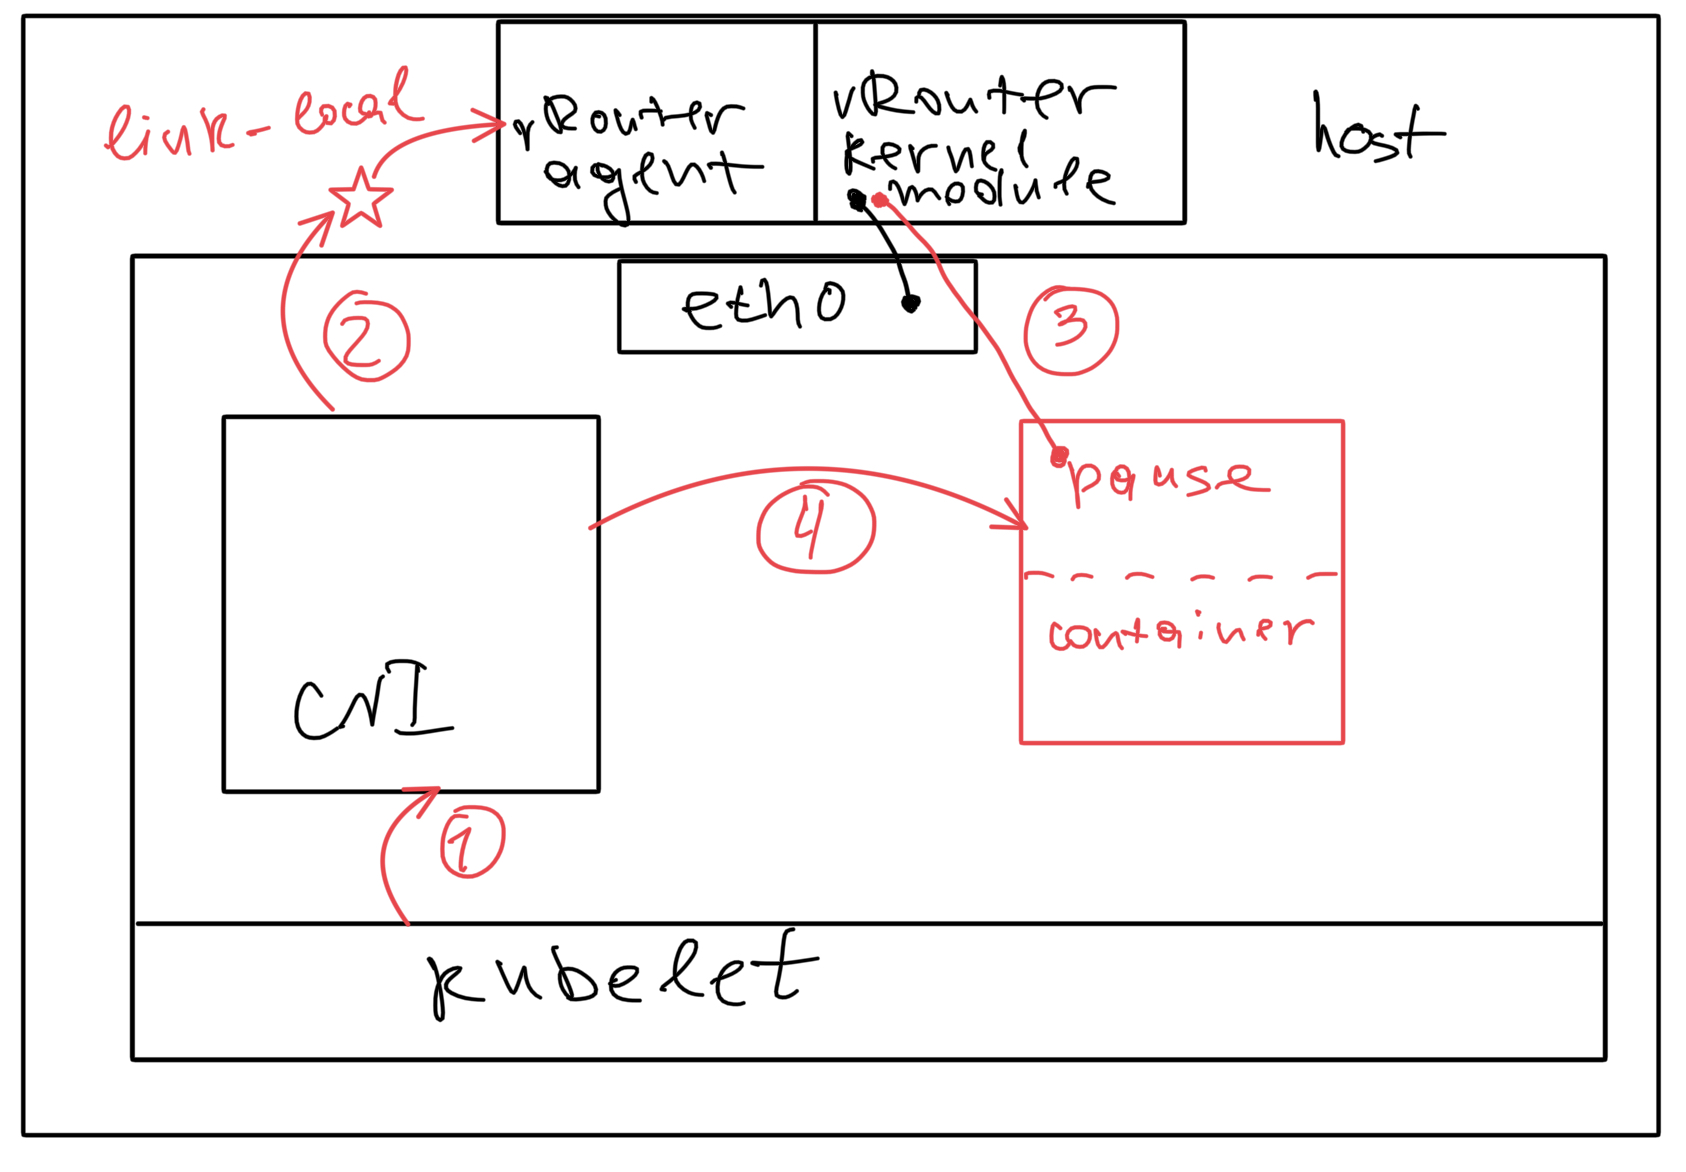 link-local
vRouter
agent
vRouter
kernel
module
host
eth0
2
3
4
pause
container
CNI
1
kubelet